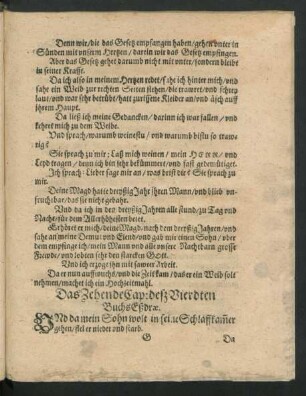 Denn wir/die das Gesetz empfangen haben/gehen vnter in
Sünden mit vnserm Hertzen/darein wir das Gesetz empfingen.
Aber das Gesetz gehet darumb nicht mit vnter/sondern bleibt
in seiner Krafft.
Da ich also in meinem Hertzen redet/sahe ich hinter mich/vnd
sahe ein Weib zur rechten Seiten stehen/die trawret/vnd schrey
laut/vnd war sehr betrübt/hatt zurissene Kleider an/vnd auff
jhrem Haupt.
Da ließ ich meine Gedancken/darinn ich war fallen/vnd
kehret mich zu dem Weibe.
Vnd sprach: warumb weinestu/vnd warumb bistu so traw-
rig?
Sie sprach zu mir: Laß mich weinen/mein Herr/vnd
Leyd tragen/denn ich bin sehr bekümmert/vnd fast gedemütiget.
Ich sprach: Lieber sage mir an/was dir? Sie sprach zu
mir.
Deine Magd hatte dreyssig Jahr jhren Mann/vnd blieb vn-
fruchtbar/das sie nicht gebahr.
Vnd da ich in den dreyssig Jahren alle stund/zu Tag vnd
Nacht/für dem Allerhöhesten betet.
Erhöret er mich/deine Magd/nach dem dreyssig Jahren/vnd
sahe an meine Demut vnd Elend/vnd gab mir einen Sohn/
dem empfinge ich/mein Mann vnd alle vnsere Nachtbarn grosse
Frewde/vnd lobten sehr den starcken Gott.
Vnd ich erzoge jhn mit sawrer Arbeit.
Da er nun auffwuchs/vnd die Zeit kam/das er ein Weib solt
nehmen/machet ich ein Hochzeitmahl.
Das Zehende Cap: deß Vierdten
Buchs Eßdræ.
VNd da mein Sohn wolt in seine Schlaffkam̃er
gehen/fiel er nieder vnd starb.
G Da